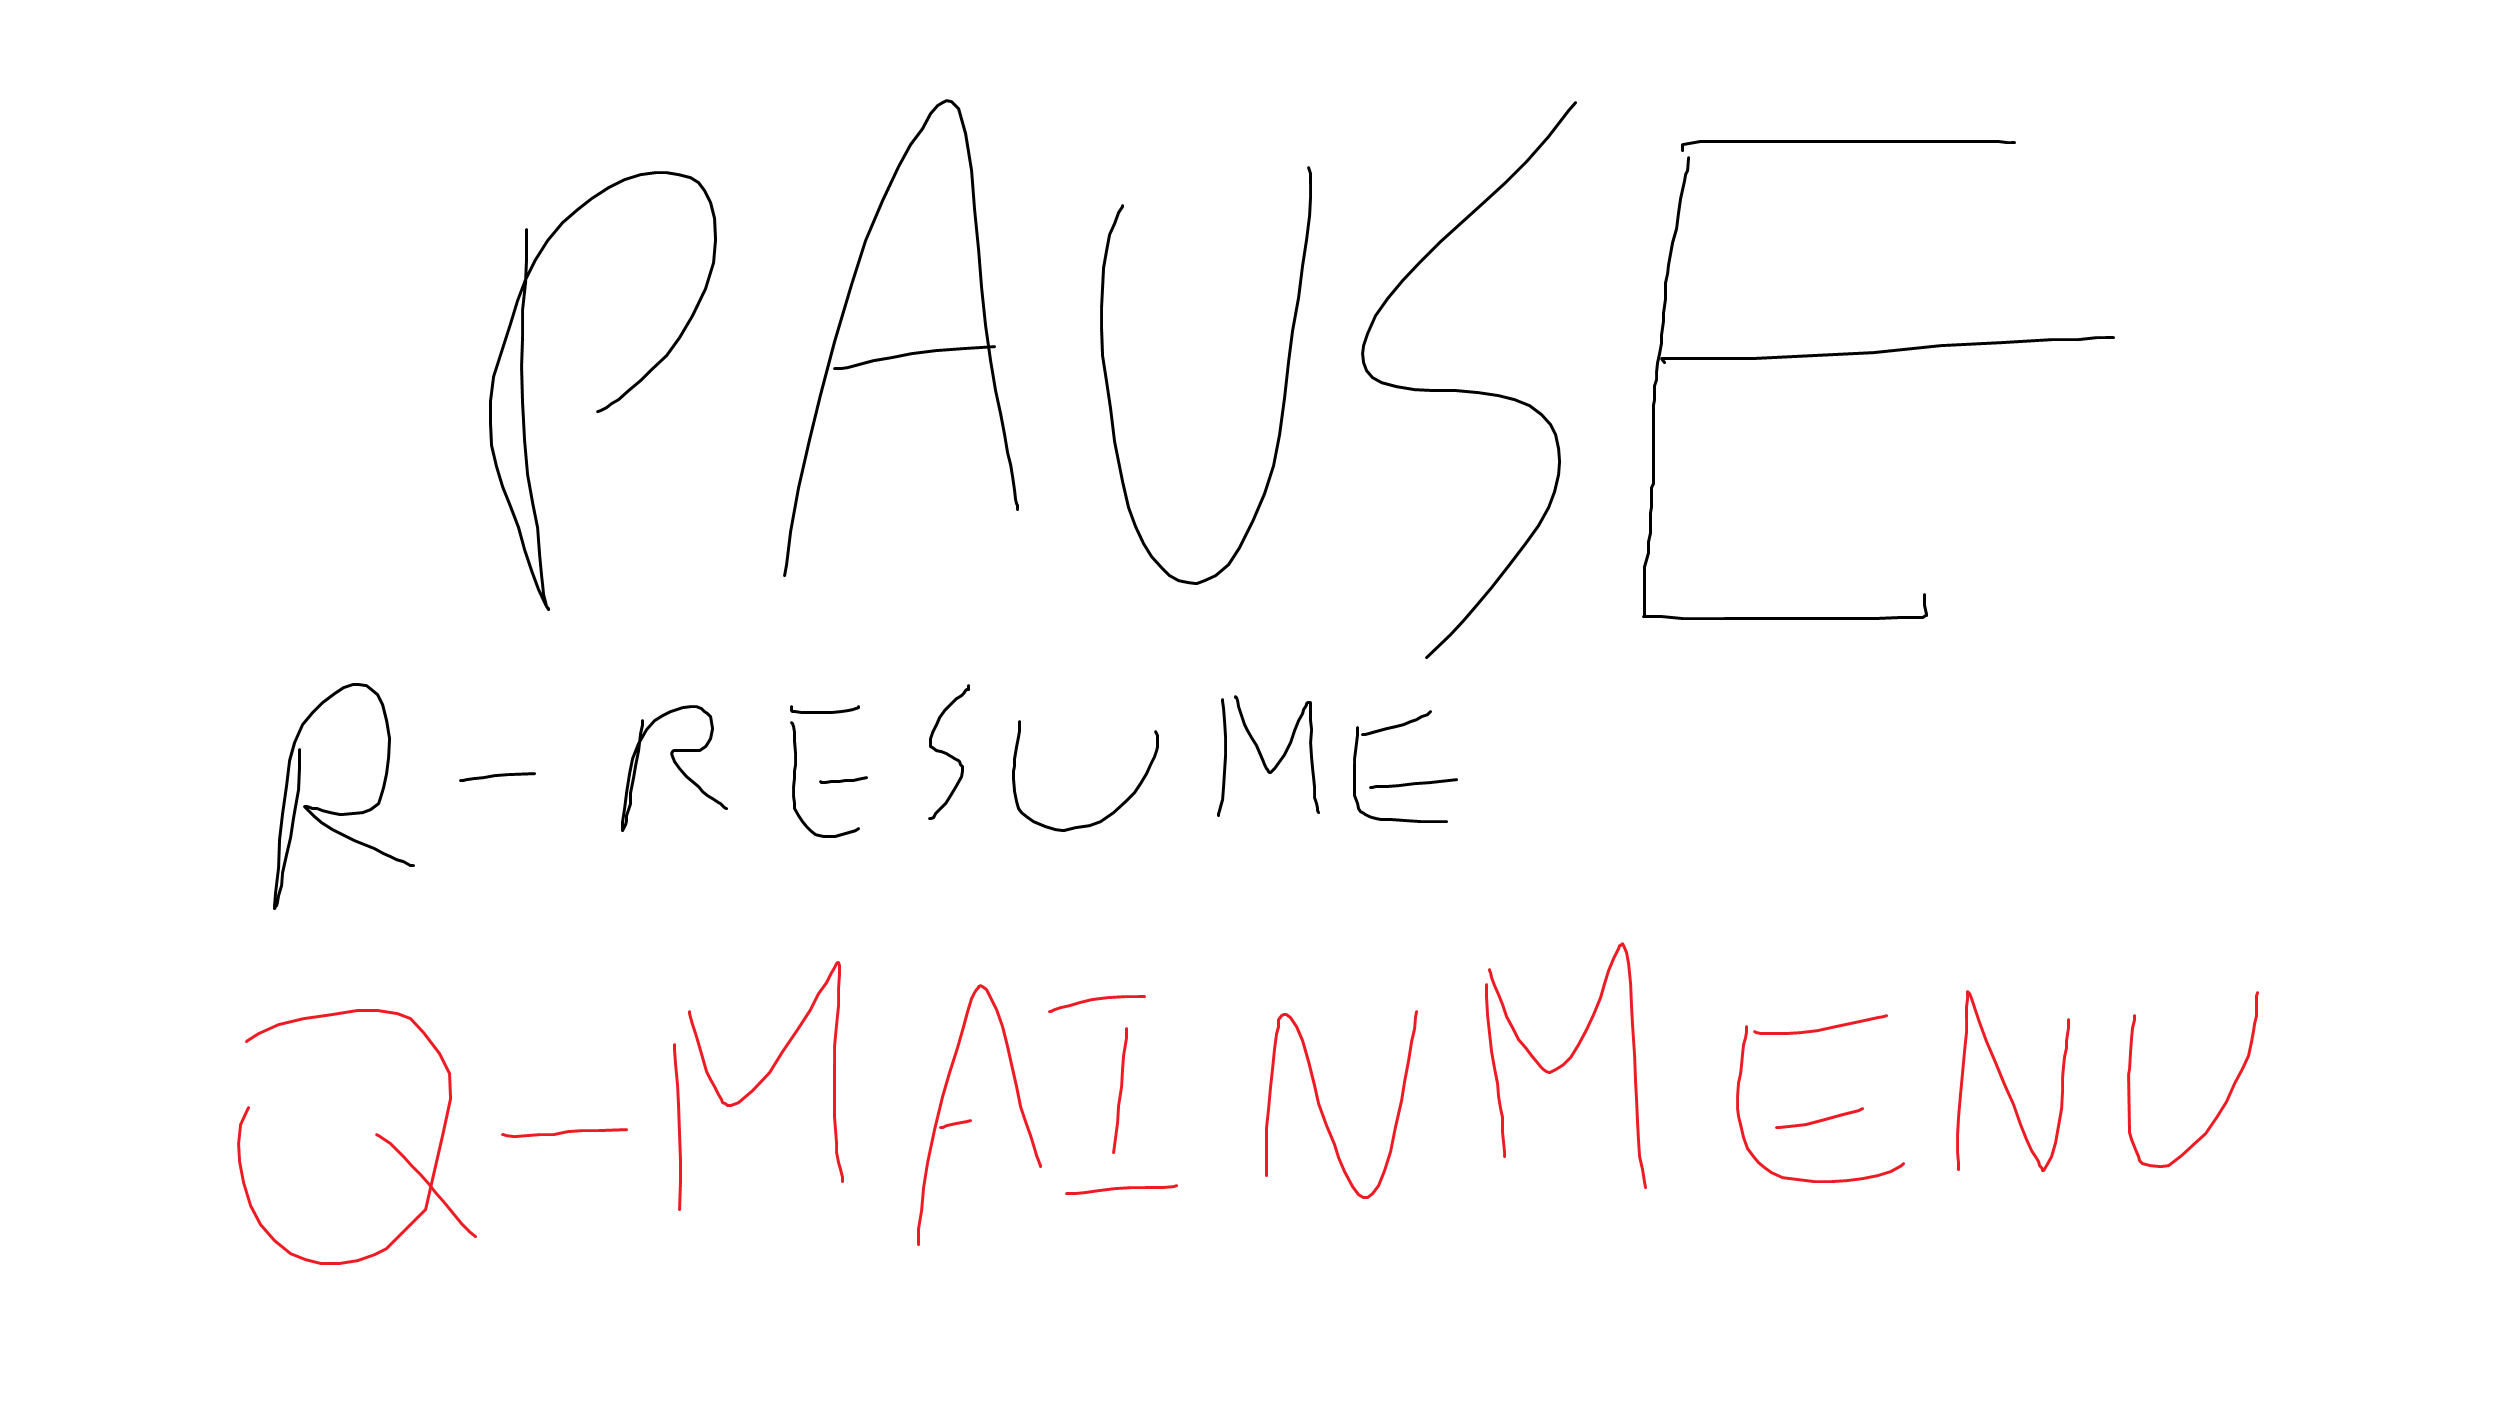 PAUSE
R-RESUME
Q-MAINMENU